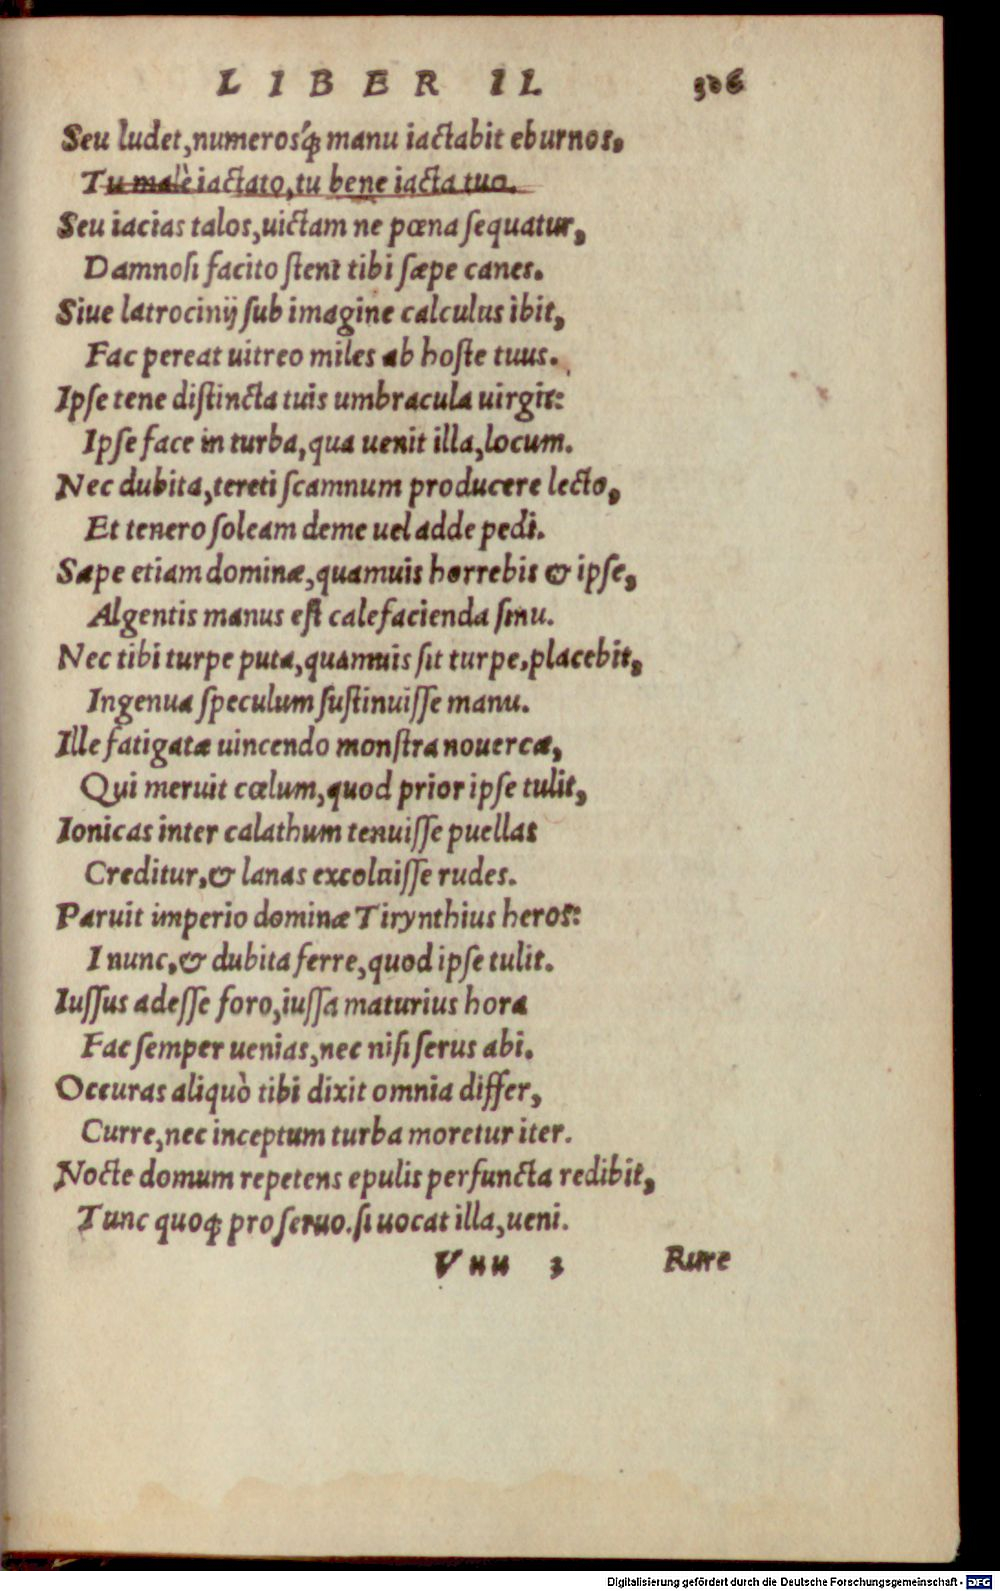 LIBER II. 306
Seu ludet, numerosq́; manu iactabit eburnos,
Tu malè iactato, tu bene iacta tuo.
Seu iacias talos, uictam ne pœna sequatur,
Damnosi facito stent tibi sæpe canes.
Siue latrocinij sub imagine calculus ibit,
Fac pereat uitreo miles ab hoste tuus.
Ipse tene distincta tuis umbracula uirgis:
Ipse face in turba, qua uenit illa, locum.
Nec dubita, tereti scamnum producere lecto,
Et tenero soleam deme uel adde pedi.
Sæpe etiam dominæ, quamuis horrebis & ipse,
Algentis manus est calefacienda sinu.
Nec tibi turpe puta, quamuis sit turpe, placebit,
Ingenua speculum sustinuisse manu.
Ille fatigatæ uincendo monstra nouercæ,
Qui meruit cœlum, quod prior ipse tulit,
Ionicas inter calathum tenuisse puellas
Creditur, & lanas excoluisse rudes.
Paruit imperio dominæ Tirynthius heros:
I nunc, & dubita ferre, quod ipse tulit.
Iussus adesse foro, iussa maturius hora
Fac semper uenias, nec nisi serus abi.
Occuras aliquò tibi dixit omnia differ,
Curre, nec inceptum turba moretur iter.
Nocte domum repetens epulis perfuncta redibit,
Tunc quoq; pro seruo. si uocat illa, ueni.
Vuu 3 Rure
Digitalisierung gefördert durch die Deutsche Forschungsgemeinschaft - DFG